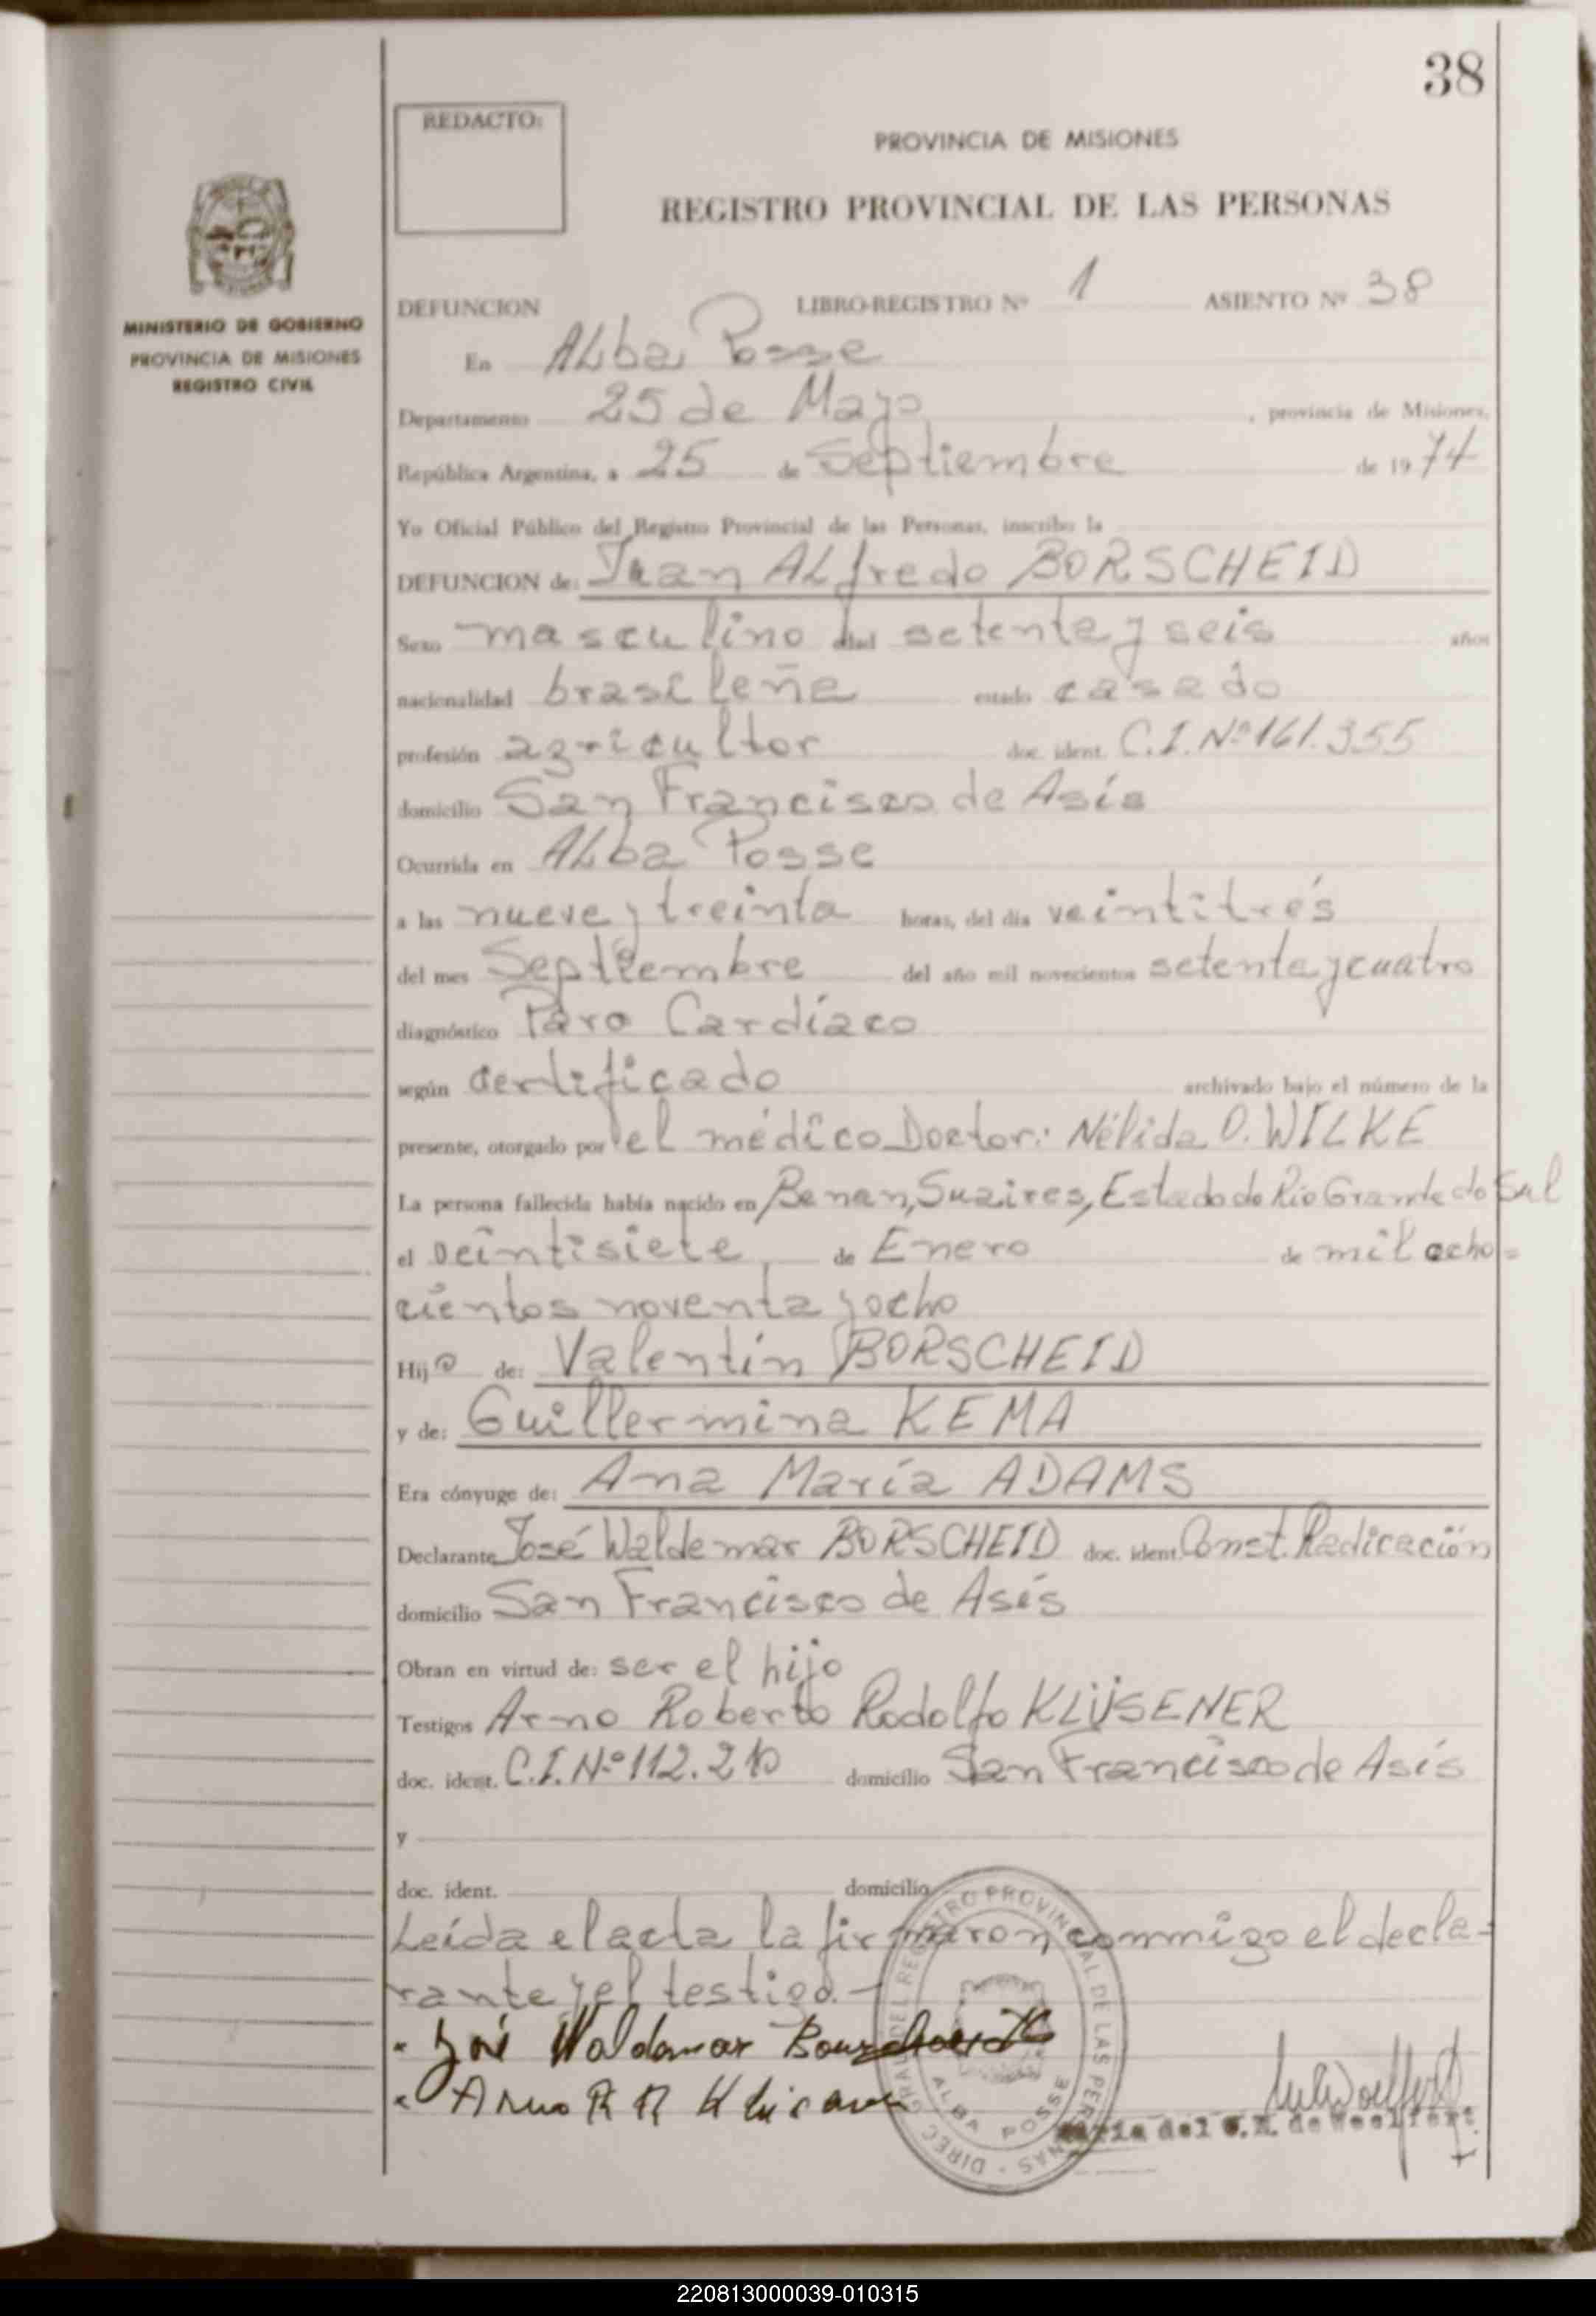 38
REDACTO:
PROVINCIA DE MISIONES
REGISTRO PROVINCIAL DE LAS PERSONAS
MINISTERIO DE GOBIERNO
PROVINCIA DE MISIONES
REGISTRO CIVIL
DEFUNCION LIBRO-REGISTRO Nº 1 ASIENTO Nº 38
En Alba Posse
Departamento 25 de Mayo, provincia de Misiones,
República Argentina, a 25 de Septiembre de 1974
Yo Oficial Público del Registro Provincial de las Personas, inscribo la
DEFUNCION de: Juan Alfredo BORSCHEID
Sexo masculino edad setenta y seis años
nacionalidad brasileña estado casado
profesión agricultor doc. ident. C.I. Nº 161.355
domicilio San Francisco de Asís
Ocurrida en Alba Posse
a las nueve y treinta horas, del día veintitrés
del mes Septiembre del año mil novecientos setenta y cuatro
diagnóstico Paro Cardíaco
según certificado archivado bajo el número de la
presente, otorgado por el médico Doctor: Nélida O. WILKE
La persona fallecida había nacido en Benan, Suaires, Estado do Rio Grande do Sul
el veintisiete de Enero de mil ocho=
cientos noventa y ocho
Hijo de: Valentín BORSCHEID
y de: Guillermina KEMA
Era cónyuge de: Ana María ADAMS
Declarante José Waldemar BORSCHEID doc. ident. Const. Radicación
domicilio San Francisco de Asís
Obran en virtud de: ser el hijo
Testigos Arno Roberto Rodolfo KLÜSENER
doc. ident. C.I. Nº 112.210 domicilio San Francisco de Asís
y
doc. ident. domicilio
Leída el acta la firmaron conmmigo el decla-
rante y el testigo.-
José Waldemar
Arno R R
DIREC. GRAL DEL REGISTRO PROVINCIAL DE LAS PERSONAS
ALBA POSSE
María del de Woelfert
220813000039-010315